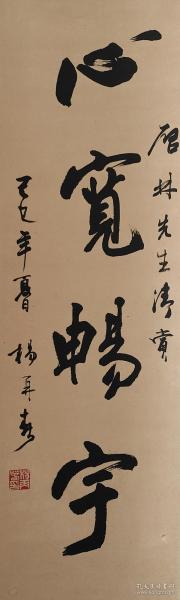 启林先生清赏
心寬暢宇
己巳年夏日
楊再春